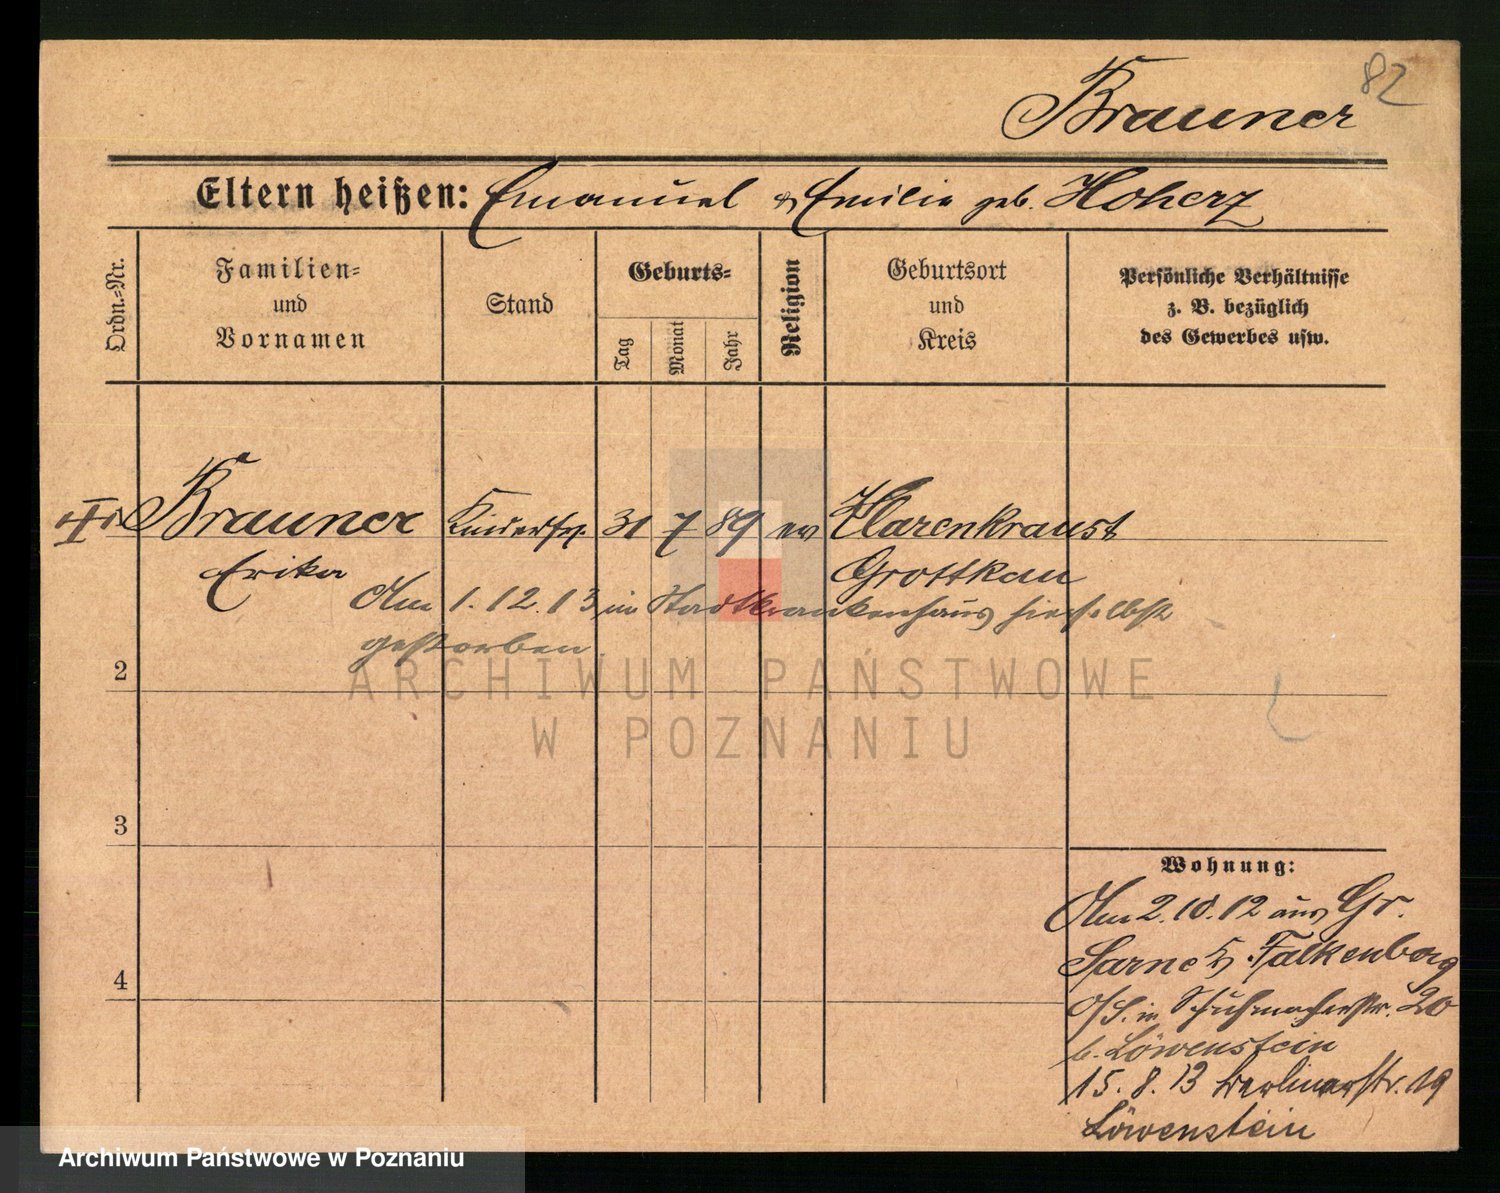 82
Brauner
Eltern heißen: Emanuel & Emilie geb. Hoherz
Ordn.=Nr.
Familien=
und
Vornamen
Stand
Geburts=
Tag
Monat
Jahr
Religion
Geburtsort
und
Kreis
Persönliche Verhältnisse
z. B. bezüglich
des Gewerbes usw.
Brauner Kinderfrl. 31 7 89 ev Märzenkraust
Erika Grottkau
Am 1.12.13 im Stadtkrankenhaus hierselbst
gestorben.
2
3
4
Wohnung:
Am 2.10.12 aus Gr.
Sarne Kr Falkenberg
O/S. in Schuhmacherstr. 20
b. Löwenstein
15.8.13 Berlinerstr. 19
Löwenstein
ARCHIWUM PAŃSTWOWE
W POZNANIU
Archiwum Państwowe w Poznaniu